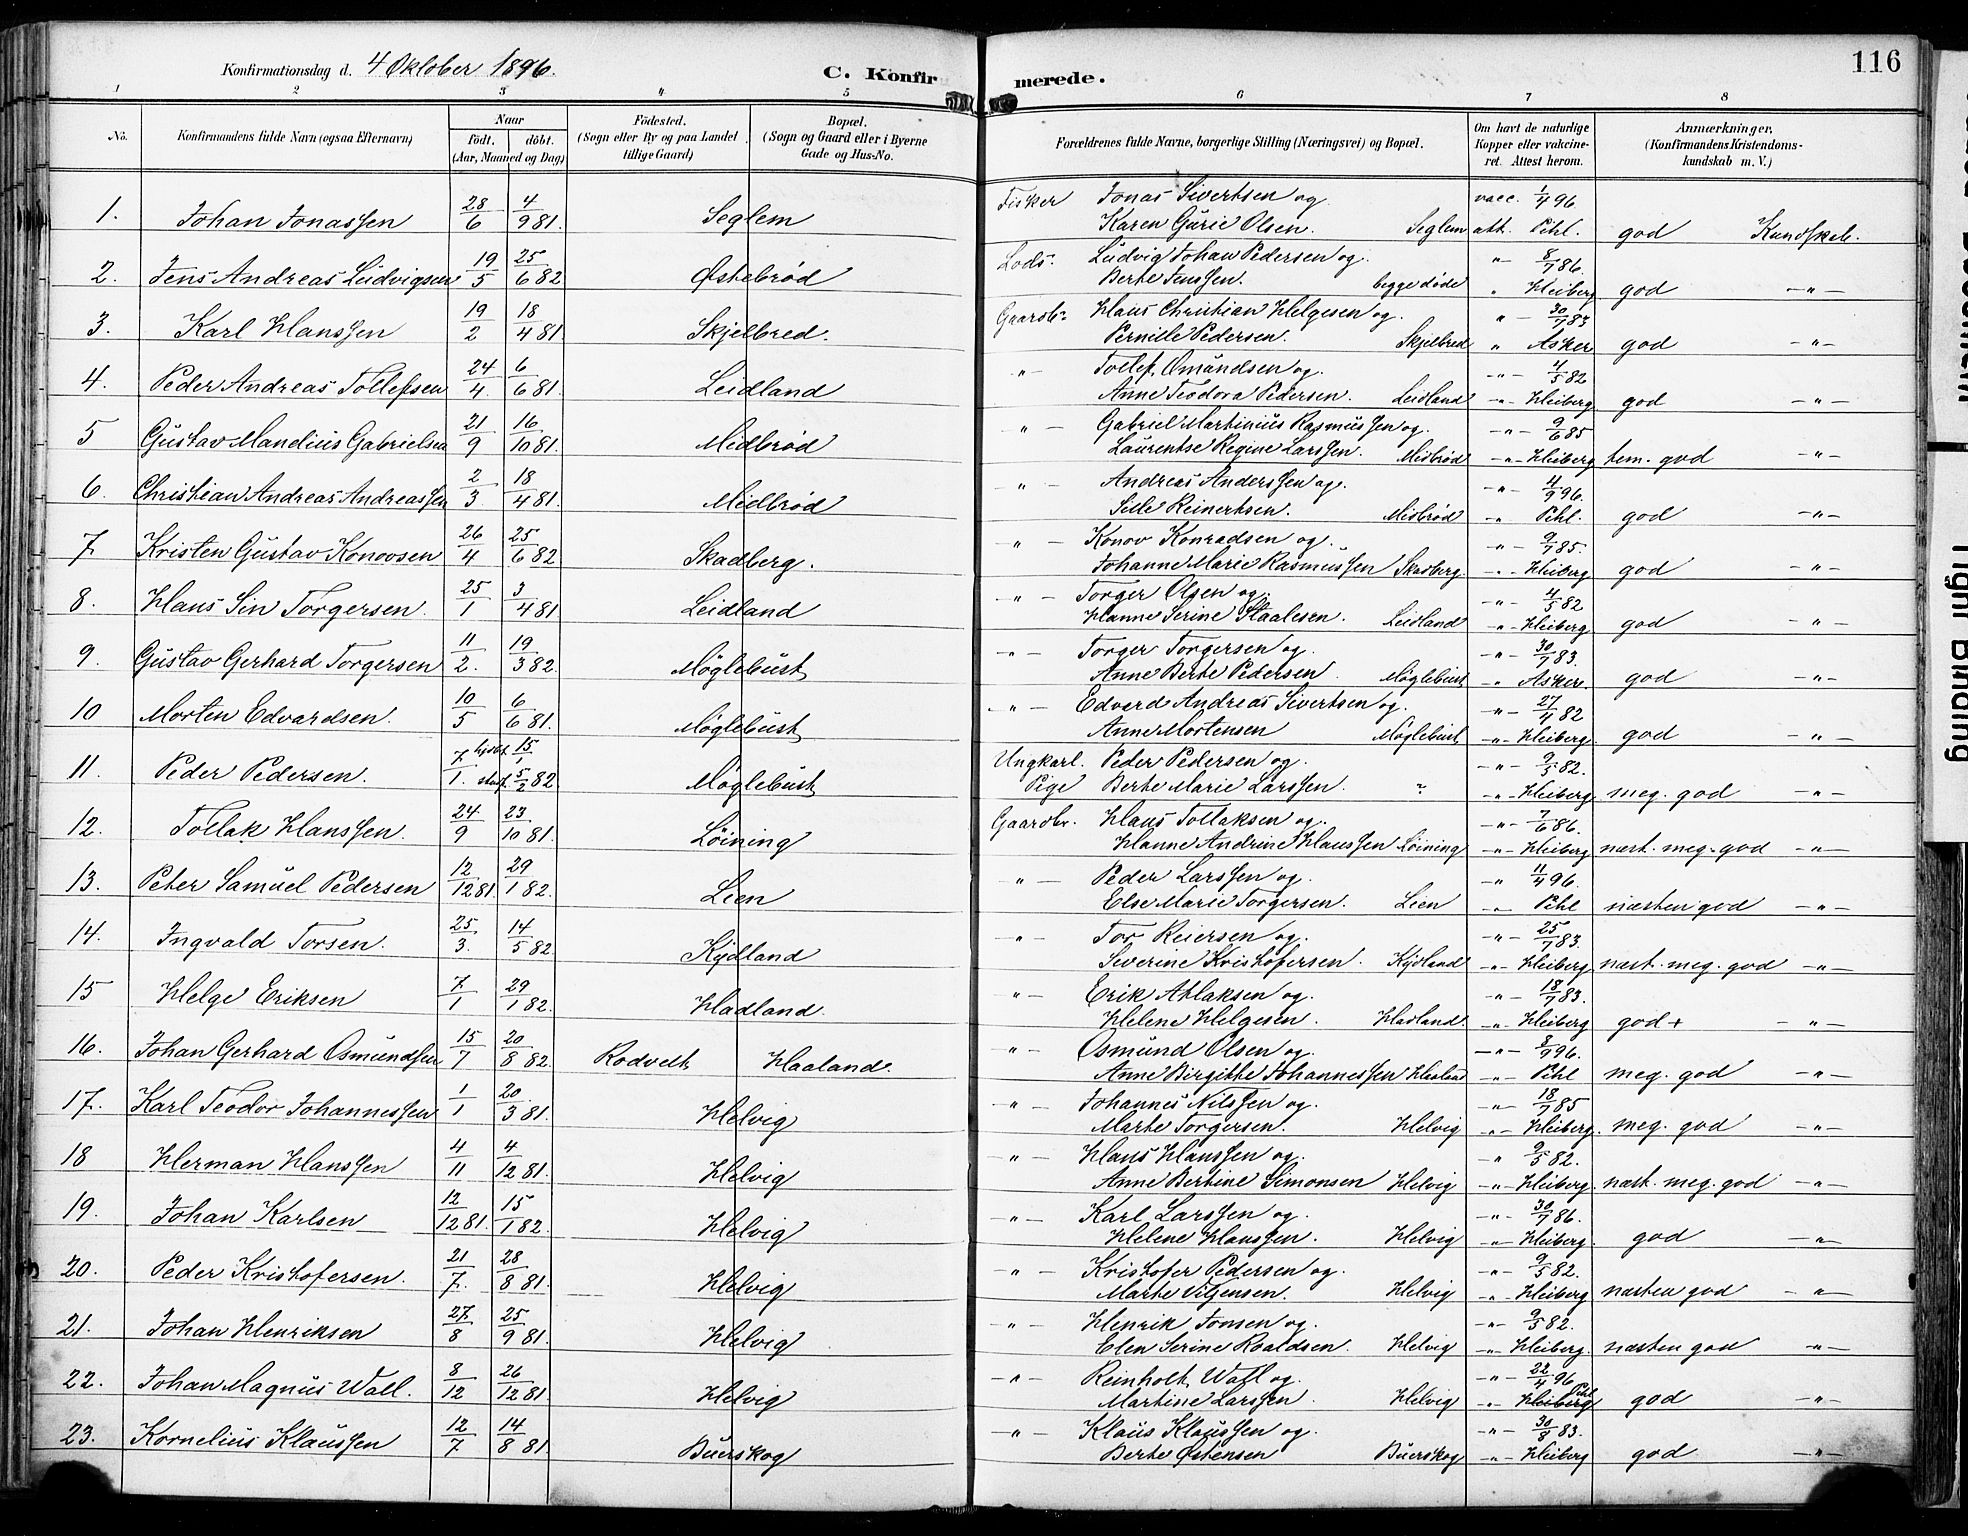 116
Konfirmationsdag d. 4 Oktober 1896.
C. Konfirmerede.
1 2 3 4 5 6 7 8
No. Konfirmandens fulde Navn (ogsaa Efternavn) Naar født. døbt. (Aar, Maaned og Dag) Fødested. (Sogn eller By og paa Landet tillige Gaard) Bopæl. (Sogn og Gaard eller i Byerne Gade og Hus-No. Forældrenes fulde Navne, borgerlige Stilling (Næringsvei) og Bopæl. Om havt de naturlige Kopper eller vakcineret. Attest herom. Anmærkninger, (Konfirmandens Kristendomskundskab m. V.)
1. Johan Jonassen 28/6 4/9 81. Seglem Fisker Jonas Sivertsen og vacc. 1/4 96
Karen Gurie Olsen. Seglem att. Pihl. god Kundskab.
2. Jens Andreas Ludvigsen 19/5 25/6 82 Østebrød Lods. Ludvig Johan Pedersen og - " - 8/7 86.
Berte Jenssen. begge døde " Heiberg god - " -
3. Karl Hanssen 19/2 18/4 81. Skjelbred. Gaardbr. Hans Christian Helgesen og. " - 30/7 83
Pernille Pedersen. Skjelbred " Asker god - " -
4. Peder Andreas Tollefsen 24/4. 6/6 81. Leidland - " - Tollef Omundsen og. - " - 4/5 82
Anne Teodora Pedersen. Leidland - " - Heiberg god - " -
5 Gustav Mandius Gabrielsen 21/9 16/10 81. Midbrød - " - Gabriel Martinius Rasmussen og. - " - 9/6 85
Laurentse Regine Larssen. Midbrød - " - Heiberg tem. god - " -
6. Christian Andreas Andreassen 2/3 18/4 81. Midbrød - " - Andreas Anderssen og. - " - 4/9 96.
Sille Reinertsen. Midbrød - " - Pihl. god - " -
7. Kristen Gustav Konovsen 26/4 25/6 82 Skadberg. - " - Konov Konradsen og. - " - 9/7 85.
Johanne Marie Rasmussen Skadberg. - " - Heiberg god - " -
8. Hans Sin Torgersen. 25/1 3/4 81 Leidland - " - Torger Olsen og. - " - 4/5 82
Hanne Serine Staalesen. Leidland - " - Heiberg god - " -
9. Gustav Gerhard Torgersen 11/2. 19/3 82. Møglebust - " - Torger Torgersen og. - " - 30/7 83.
Anne Berte Pedersen. Møglebust - " Asker. god - " -
10 Morten Edvardsen. 10/5 6/6 81. Møglebust - " - Edvard Andreas Sivertsen og. - " - 27/4 82
Anne Mortensen Møglebust - " - Heiberg. god - " -
11. Peder Pedersen. 7/1. hjdbt. 15/1 stadf. 5/2 82. Møglebust Ungkarl. Peder Pedersen og. - " - 9/5 82.
Pige Berte Marie Larssen. " - " - Heiberg meg. god - " -
12. Tollak Hanssen. 24/9 23/10 81. Løining Gaardbr. Hans Tollaksen og. - " - 7/6 86.
Hanne Andrine Hanssen Løining - " - Heiberg næst. meg. god - " -
13. Peter Samuel Pedersen 12/12 81. 29/1 82. Lien - " - Peder Larssen og. - " 11/4 96.
Else Marie Torgersen. Lien - " - Pihl næsten god - " -
14. Ingvald Torsen. 25/3. 14/5 82. Kydland - " - Tor Reiersen og. - " - 25/7 83.
Severine Kristofersen. Kydland - " - Heiberg næst. meg. god - " -
15 Helge Eriksen 7/1 29/1 82. Hadland. - " - Erik Atlaksen og. - " - 18/7 83.
Helene Helgesen. Hadland. - " - Heiberg god + - " -
16. Johan Gerhard Osmundsen 15/7 20/8 82. Rodvelt Haaland. - " - Osmund Olsen og. - " - 8/9 96.
Anne Birgitte Johannessen Haaland - " - Pihl meg. god - " -
17. Karl Teodor Johannessen 1/1 20/3 81. Helvig - " - Johannes Nilssen og. - " 18/7 85
Marte Torgersen. Helvig - " - Heiberg. meg. god - " -
18 Herman Hanssen 4/11 4/12 81. Helvig - " - Hans Hanssen og. - " 9/5 82.
Anne Bertine Simonsen Helvig - " - Heiberg. næst. meg. god - " -
19. Johan Karlsen 12/12 81. 15/1 82. Helvig - " - Karl Larssen og. - " - 30/7 86.
Helene Hanssen. Helvig - " - Heiberg. god - " -
20. Peder Kristofersen. 21/7. 28/8 81. Helvig - " - Kristofer Pedersen og. - " - 9/5 82.
Marte Viljensen. Helvig - " - Heiberg næsten god - " -
21. Johan Henriksen 27/8 25/9 81. Helvig - " - Henrik Jonsen og. - " - 9/5 82.
Elen Serine Roaldsen. Helvig - " - Heiberg. næsten god - " -
22. Johan Magnus Wall. 8/12 26/12 81. Helvig - " - Reinholt Wall og. - " - 22/4 96
Martine Larssen Helvig - " - Heiberg Pihl god - " -
23. Kornelius Klaussen 12/7 14/8 81. Buerskog - " - Klaus Klaussen og. - " - 30/8 83.
Berte Østensen Buerskog - " - Heiberg god - " -
Tight Binding